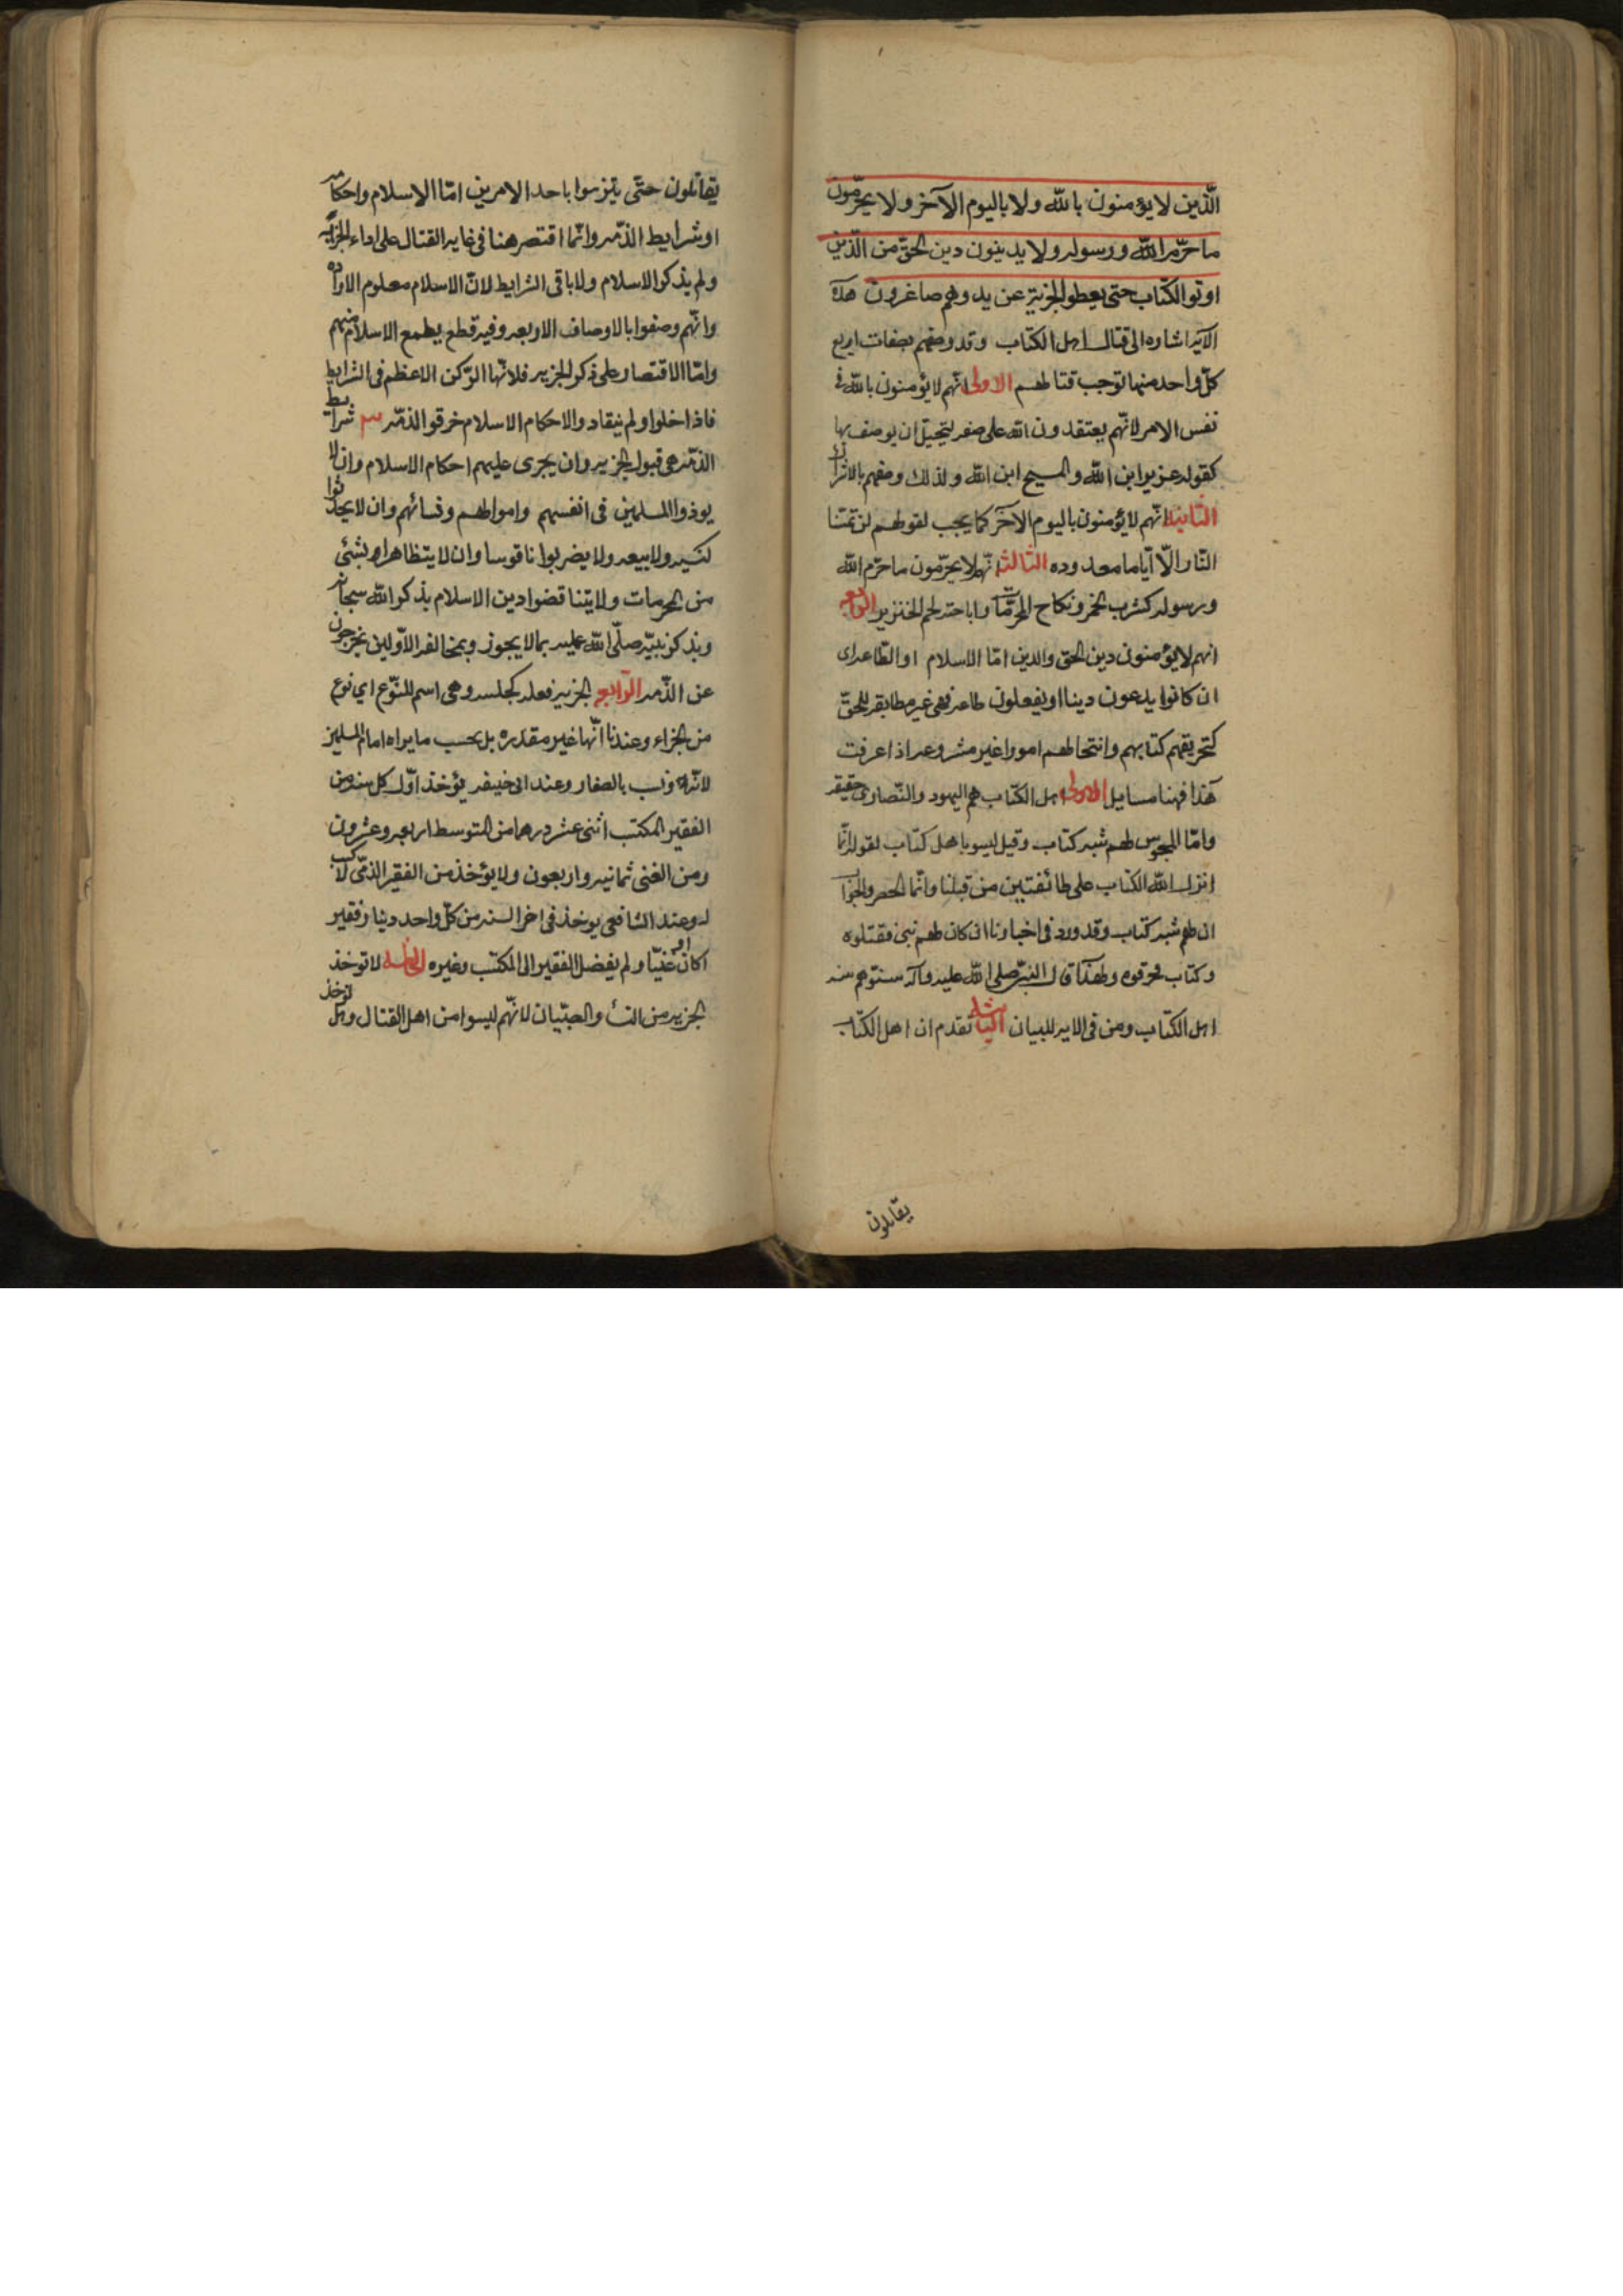 الّذين لا يؤمنون بالله ولا باليوم الآخر ولا يحرّمون
ما حرّم الله ورسوله ولا يدينون دين الحقّ من الّذين
اوتو الكتاب حتى يعطوا الجزية عن يد وهم صاغرون هذه
الآية اشاره الى قتال اهل الكتاب وقد وصفهم بصفات اربع
كلّ واحد منها توجب قتالهم الاولى انّهم لا يؤمنون بالله في
نفس الامر لانّهم يعتقدون الله على صفه يستحيل ان يوصف بها
كقوله عزير ابن الله والمسيح ابن الله ولذلك وصفهم بالاشراك
الثانيه انّهم لا يؤمنون باليوم الآخر كما يجب لقولهم لن تمسّنا
النّار الّا ايّاما معدوده الثالثه انّهم لا يحرّمون ما حرّم الله
ورسوله كشرب الخمر ونكاح المحرّمات واباحة لحم الخنزير الرابعه
انهم لا يؤمنون دين الحق والدين امّا الاسلام او الطاعه اى
ان كانوا يدعون دينا او يفعلون طاعه فهى غير مطابقه للحقّ
كتحريفهم كتابهم وانتحالهم امورا غير مشروعه اذا عرفت
هذا فهنا مسايل الاولى اهل الكتاب هم اليهود والنّصارى حقيقه
وامّا المجوس لهم شبه كتاب وقيل ليسو باهل كتاب لقوله انّما
انزل الله الكتاب على طائفتين من قبلنا وانّما للحصر والجواب
ان لهم شبه كتاب وقد ورد في اخبارنا ان كان لهم نبى فقتلوه
وكتاب فحرقوه ولهذا قال النبىّ صلى الله عليه وآله سنّوهم سنه
اهل الكتاب ومن فى الايه للبيان الثانيه تقدم ان اهل الكتاب
يقاتلون
يقاتلون حتّى يلتزموا باحد الامرين امّا الاسلام واحكامه
او شرايط الذمّه وانّما اقتصر هنا فى غايه القتال على اداء الجزيه
ولم يذكر الاسلام ولا باقى الشرايط لانّ الاسلام معلوم الاراده
وانّهم وصفوا بالاوصاف الاربعه وفيه قطع بطمع الاسلام منهم
وامّا الاقتصار على ذكر الجزيه فلانّها الرّكن الاعظم فى الشرايط
فاذا اخلوا ولم ينقادوا لاحكام الاسلام خرقو الذمّه شرايط
الذمّه هى قبول الجزيه وان يجرى عليهم احكام الاسلام وان لا
يوذوا المسلمين فى انفسهم واموالهم ونسائهم وان لا يحدثوا
كنيسه ولا بيعه ولا يضربوا ناقوسا وان لا يتظاهروا بشئى
من المحرمات ولا يتناقضوا دين الاسلام بذكر الله سبحانه
وبذكر نبيّه صلّى الله عليه بما لا يجوز وبمخالفه الاوّلين يخرجون
عن الذّمه الرّابعه الجزيه فعله كجلسه وهى اسم للنّوع اي نوع
من الجزاء وعندنا انّها غير مقدره بل بحسب ما يراه امام المسلمين
لانّه انسب بالصغار وعند ابى حنيفه يؤخذ اوّل كل سنه من
الفقير المكتسب اثنى عشر درهما من المتوسط اربعه وعشرون
ومن الغنى ثمانيه واربعون ولا يؤخذ من الفقير الذمّى لا كسب
له وعند الشافعى يوخذ فى اخر السنه من كلّ واحد دينار فقير
اكان او غنيّا ولم يفضل الفقير الى المكتسب وغيره الخامسه لا توخذ
الجزيه من النساء والصبّيان لانّهم ليسوا من اهل القتال وهل توخذ